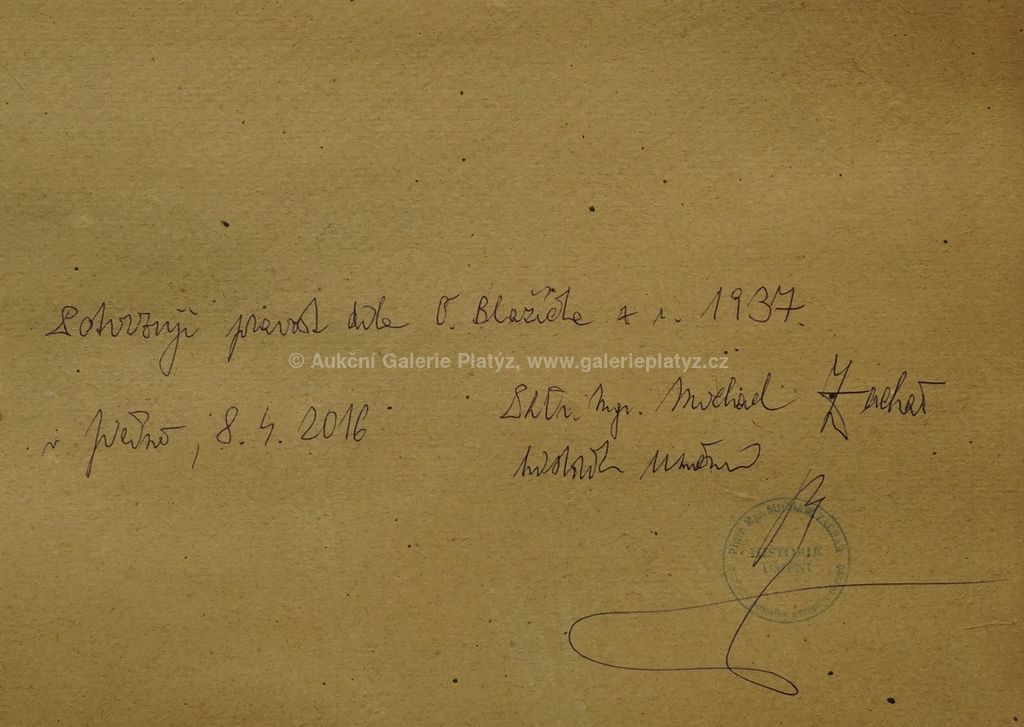 Potvrzuji pravost díla O. Blažíčka z r. 1937.
© Aukční Galerie Platýz, www.galerieplatyz.cz
PhDr. Mgr. Michael Zachař
v Praze, 8. 4. 2016
historik umění
PhDr. Mgr. Michael ZACHAŘ
HISTORIK
UMĚNÍ